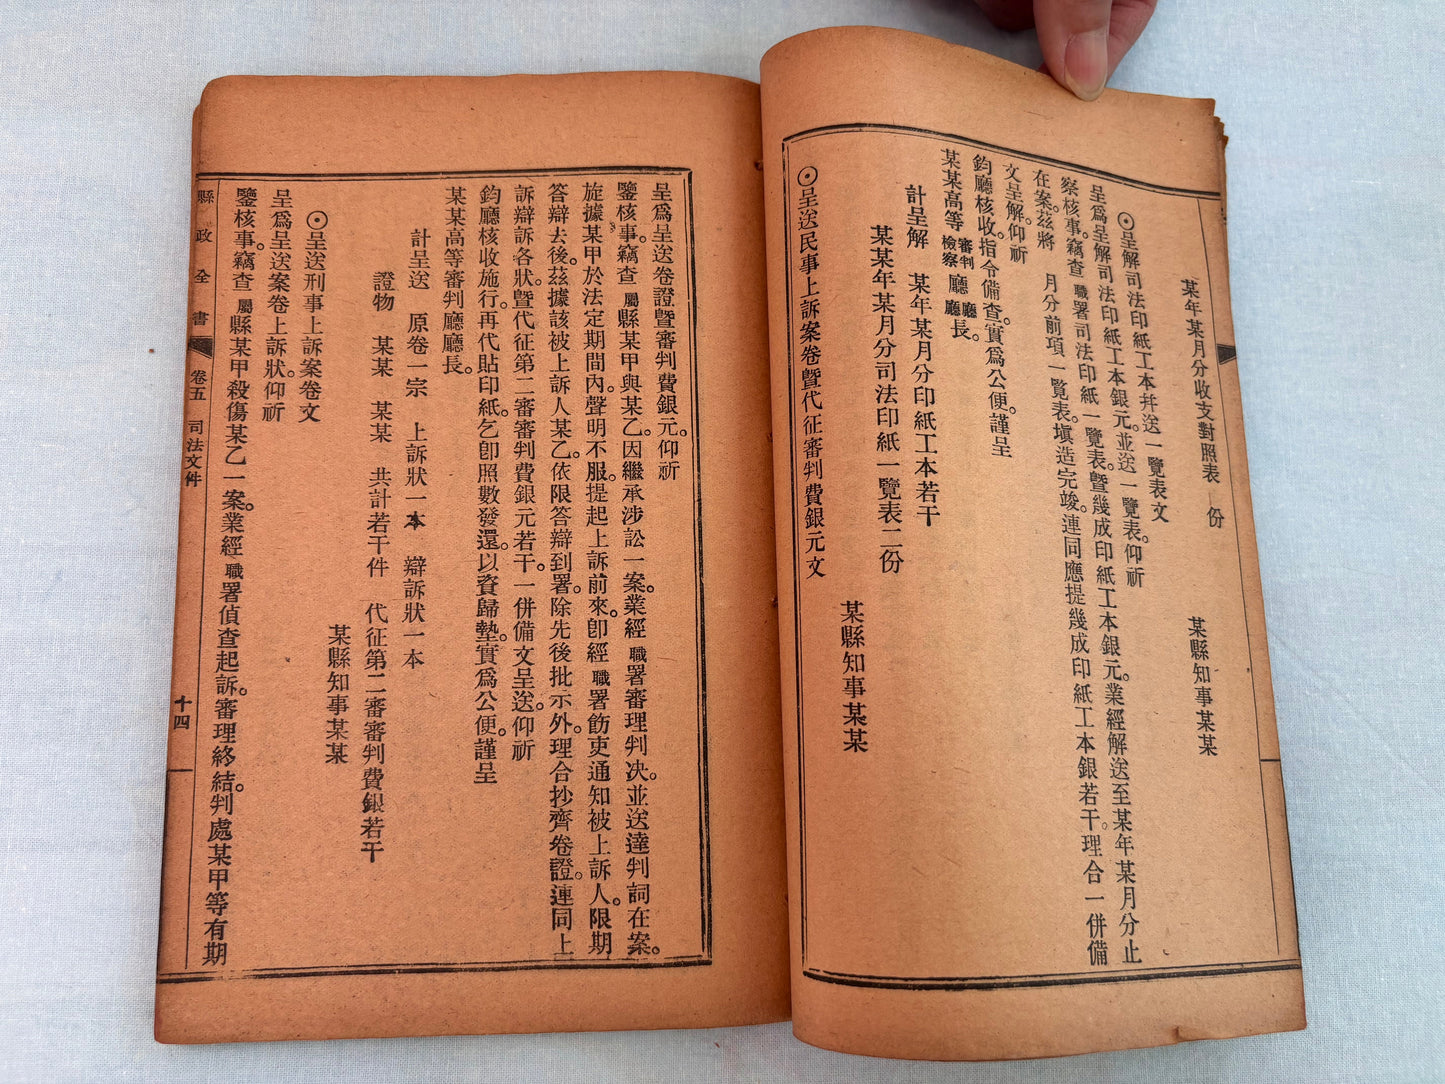 某年某月分收支對照表　份
某縣知事某某
⊙呈解司法印紙工本幷送一覽表文
呈爲呈解司法印紙工本銀元。並送一覽表。仰祈
察核事。竊查職署司法印紙一覽表。曁幾成印紙工本銀元。業經解送至某年某月分止
在案。茲將　月分前項一覽表。塡造完竣。連同應提幾成印紙工本銀若干。理合一併備
文呈解。仰祈
鈞廳核收。指令備查。實爲公便。謹呈
某某高等審判檢察廳廳長。
計呈解　某年某月分印紙工本若干
某某年某月分司法印紙一覽表二份
某縣知事某某
⊙呈送民事上訴案卷曁代征審判費銀元文
呈爲呈送卷證曁審判費銀元。仰祈
鑒核事。竊查屬縣某甲與某乙。因繼承涉訟一案。業經職署審理判决。並送達判詞在案。
旋據某甲於法定期間內。聲明不服。提起上訴前來。卽經職署飭吏通知被上訴人。限期
答辯去後。茲據該被上訴人某乙。依限答辯到署。除先後批示外。理合抄齊卷證。連同上
訴辯訴各狀。曁代征第二審審判費銀元若干。一併備文呈送。仰祈
鈞廳核收施行。再代貼印紙。乞卽照數發還。以資歸墊。實爲公便。謹呈
某某高等審判廳廳長。
計呈送　原卷一宗　上訴狀一本　辯訴狀一本
證物　某某　某某　共計若干件　代征第二審審判費銀若干
某縣知事某某
⊙呈送刑事上訴案卷文
呈爲呈送案卷上訴狀。仰祈
鑒核事。竊查屬縣某甲殺傷某乙一案。業經職署偵查起訴。審理終結。判處某甲等有期
縣政全書　卷五　司法文件　十四